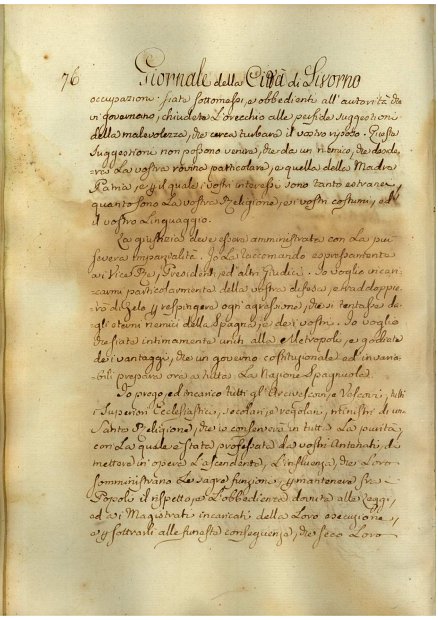 76 Giornale della Città di Livorno
occupazioni siate sottomessi, e obbedienti all'autorità che
vi governono, chiudete l'orecchio alle perfide suggestioni
della malevolezza, che cerca turbare il vostro riposo. Queste
suggestioni non possono venire, che da un nemico, che desidera
la vostra rovina particolare, e quella della Madre
Patria, e p. il quale i vostri interessi sono tanto estranei,
quanto sono la vostra Religione, e i vostri costumi, ed
il vostro Linguaggio.
La giustizia deve esser amministrata con la più
severa imparzialità. Io la raccomando espressamente
ai Vice Re, Presidenti, ed altri Giudici. Io voglio incaricarmi
particolarmente della vostra difesa, e raddoppierò
di zelo p. respingere ogni agressione, che si tentasse dagli
eterni nemici della Spagna, e dei vostri. Io voglio
che siate intimamente uniti alla Metropoli, e godiate
dei vantaggi, che un governo costituzionale ed invariabili
prepara ora a tutta la Nazione Spagnuola.
Io prego, ed incarico tutti gl'Arcivescovi, e Vescovi, tutti
i Superiori Ecclesiastici, secolari, e regolari, ministri di una
Santa Religione, che io conserverò in tutta la purità,
con la quale è stata professata da vostri Antenati, di
mettere in opera l'ascendente, l'influenza, che loro
somministrano le sagre funzioni p. mantenere fra
Popoli il rispetto, e l'obbedienza dovuta alle Leggi,
ed ai Magistrati incaricati della loro esecuzione,
e p. sottrarli alle funeste conseguenze, che seco loro